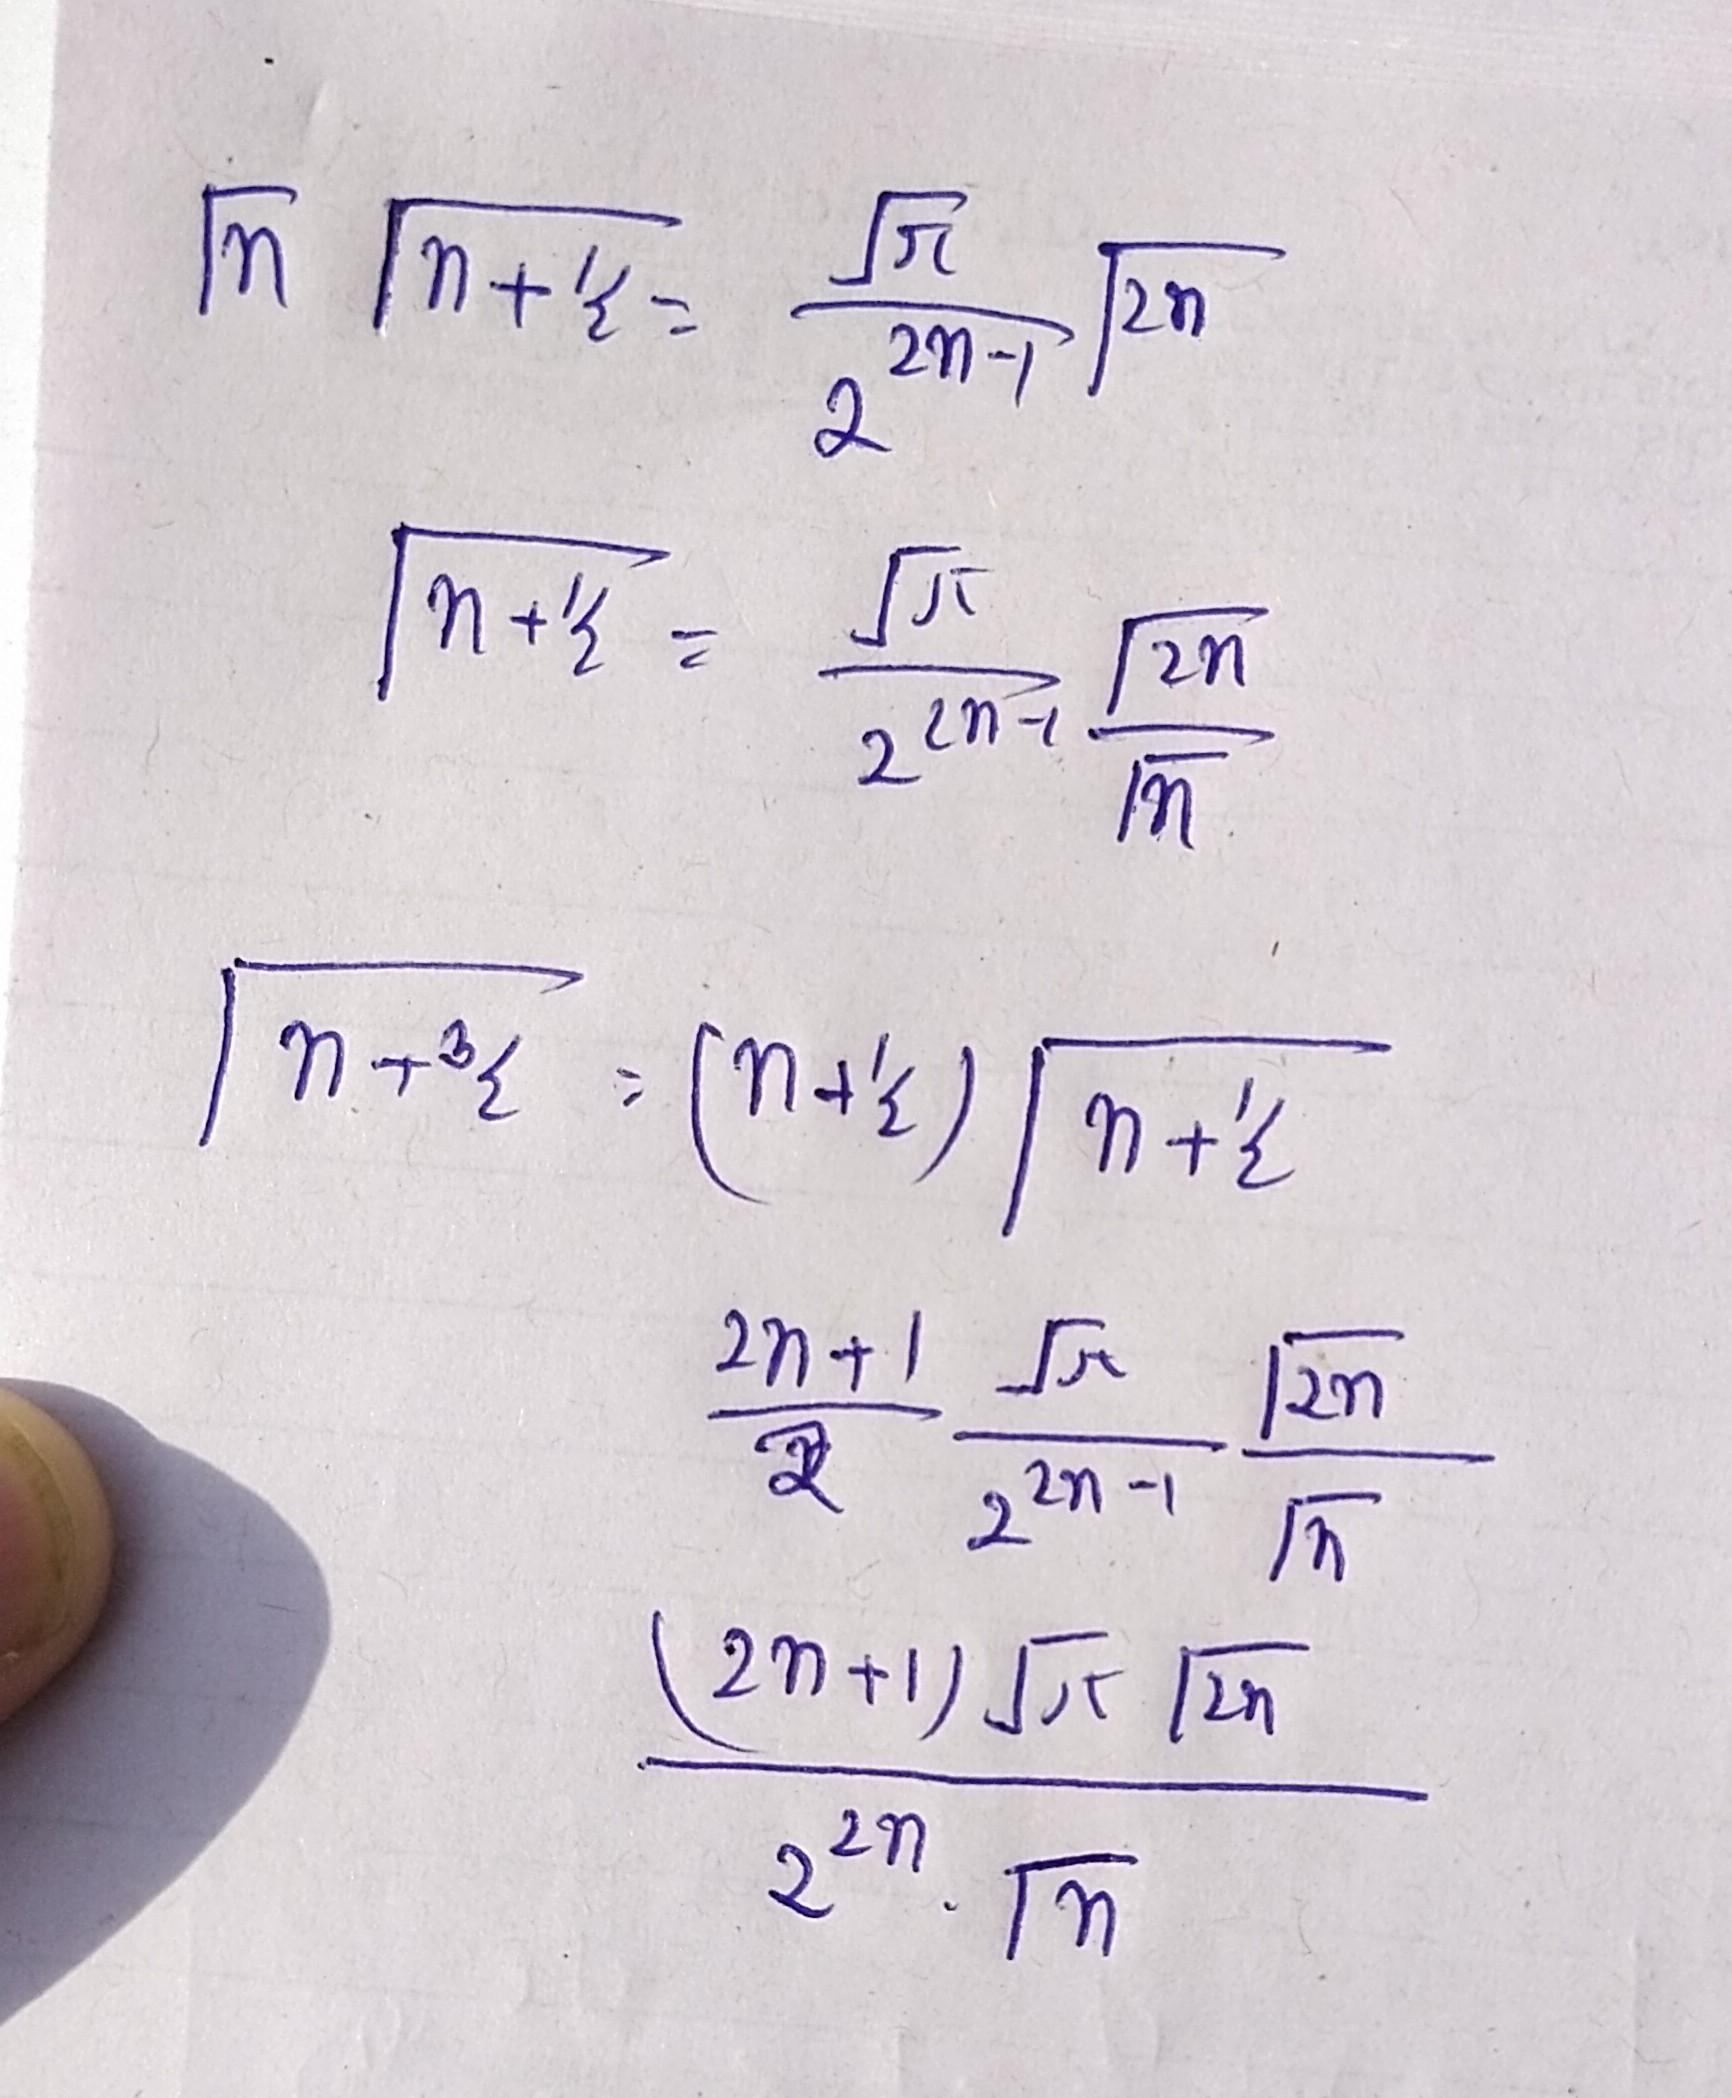 Γn Γn+½ = √π / 2^(2n-1) Γ2n
Γn+½ = √π / 2^(2n-1) Γ2n / Γn
Γn+3/2 = (n+½) Γn+½
2n+1 / 2 √π / 2^(2n-1) Γ2n / Γn
(2n+1) √π Γ2n / 2^(2n) . Γn